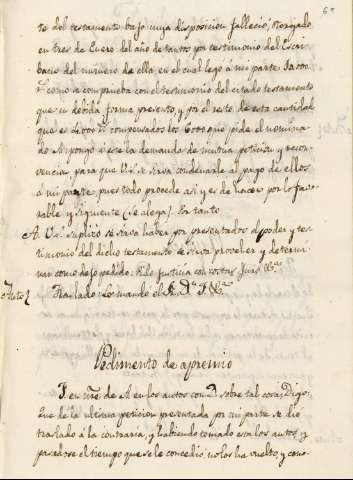 te del testamento bajo cuya disposicion fallecio, otorgado
en tres de Enero del año de tantos por testimonio del Escri
bano del numero de ella, en el cual legó á mi parte
como se comprueba con el testimonio del citado testamento
que en debida forma presento, y por el resto de esta cantidad
que es compensados los que pide el nomina
do A; pongo á este la demanda de mutua peticion y recon
vencion, para que V.S. se sirva condenarle al pago de ellos
á mi parte, pues todo procede asi, y es de hacer por lo favo
rable y siguiente (se alega). Por tanto
A V.S. suplico se sirva haber por presentados el poder y tes
timonio del dicho testamento se sirva proveher y determi
nar como dejo pedido: Pido justicia con costas Juro &c.
Auto Traslado: Lo mando el S. D.n F. &c.
Pedimento de apremio
F. en nre. de A en los autos con D. sobre tal cosa, Digo:
Que de la ultima peticion presentada por mi parte se dió
traslado á la contraria, y habiendo tomado esta los autos, y
pasadose el tiempo que se le concedió, no los ha vuelto, y como